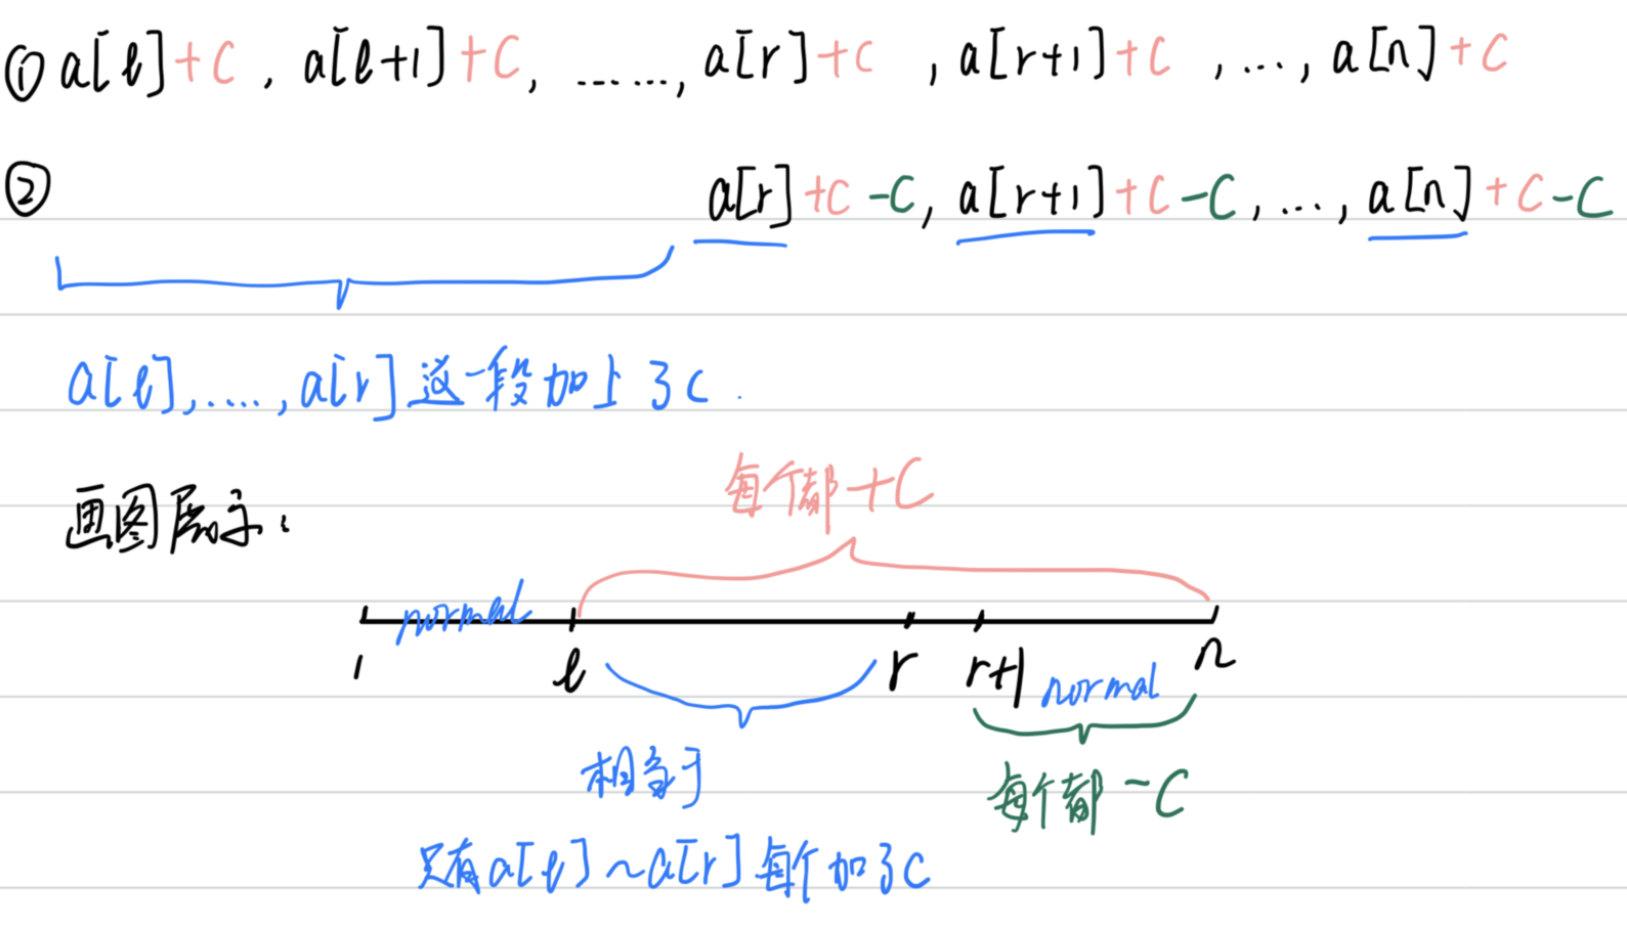 ① a[l]+C, a[l+1]+C, ......, a[r]+C, a[r+1]+C, ..., a[n]+C
② a[r]+C-C, a[r+1]+C-C, ..., a[n]+C-C
a[l],....,a[r]这一段加上了c.
画图展示:
每个都+C
normal
1 l r r+1 n
normal
相当于
每个都-C
只有a[l]~a[r]每个加了c